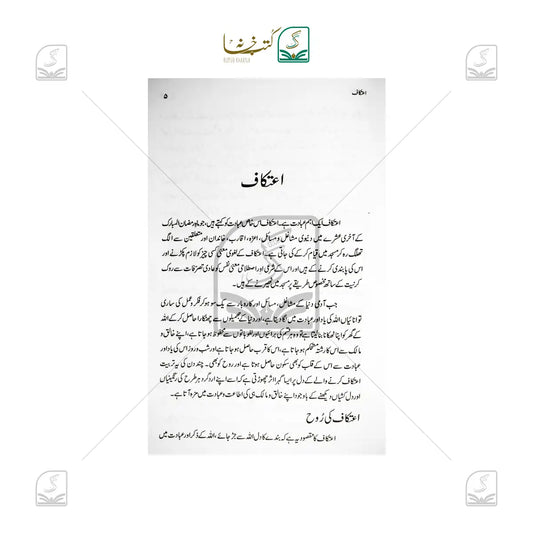 کتب خانہ
اعتکاف
۵
اعتکاف
اعتکاف ایک اہم عبادت ہے۔ اعتکاف اس خاص عبادت کو کہتے ہیں، جو ماہِ رمضان المبارک
کے آخری عشرے میں دنیوی مشاغل و مسائل، اعزہ، اقارب، خاندان اور متعلقین سے الگ
تھلگ رہ کر مسجد میں قیام کر کے کی جاتی ہے۔ اعتکاف کے لغوی معنی کسی چیز کو لازم پکڑنے اور
اس کی پابندی کرنے کے ہیں اور اس کے شرعی اور اصطلاحی معنی نفس کو عادی تصرفات سے روک
کر نیت کے ساتھ مخصوص طریقے پر مسجد میں ٹھہرنے کے ہیں۔
جب آدمی دنیا کے مشاغل، مسائل اور کاروبار سے یک سو ہو کر فکر و عمل کی ساری
توانائیاں اللہ کی یاد اور عبادت میں لگا دیتا ہے، اور دنیا کے جھمیلوں سے چھٹکارا حاصل کر کے اللہ
کے گھر کو اپنا ٹھکانا بنا لیتا ہے تو وہ ہر قسم کی برائیوں اور لغو باتوں سے محفوظ ہو جاتا ہے، اپنے خالق و
مالک سے اس کا رشتہ مستحکم ہو جاتا ہے، اس کا قرب حاصل ہو جاتا ہے اور شب و روز یاد اور
عبادت سے اس کے قلب کو بھی سکون حاصل ہوتا ہے اور روح کو بھی۔ چند دن کی یہ تربیت
اعتکاف کرنے والے کے دل پر ایسا گہرا اثر چھوڑتی ہے کہ اسے اپنے ارد گرد ہر طرح کی رنگینیاں
اور دل کشیاں دیکھنے کے باوجود اپنے خالق و مالک ہی کی اطاعت و عبادت میں مزہ آتا ہے۔
اعتکاف کی رُوح
اعتکاف کا مقصود یہ ہے کہ بندے کا دل اللہ سے جڑ جائے، اللہ کے ذکر اور عبادت میں